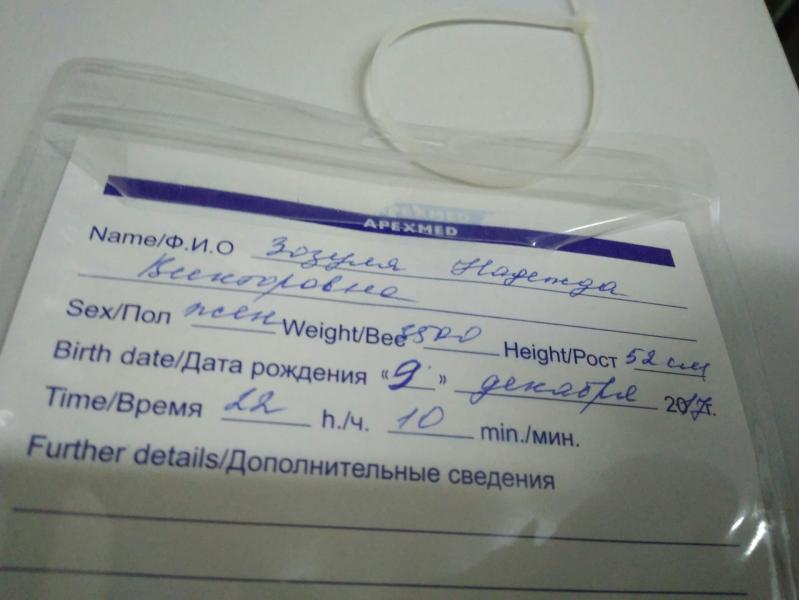 APEXMED
Name/Ф.И.О Зозуля Надежда
Викторовна
Sex/Пол жен Weight/Вес 3500 Height/Рост 52 см
Birth date/Дата рождения «9» декабря 2017г.
Time/Время 22 h./ч. 10 min./мин.
Further details/Дополнительные сведения